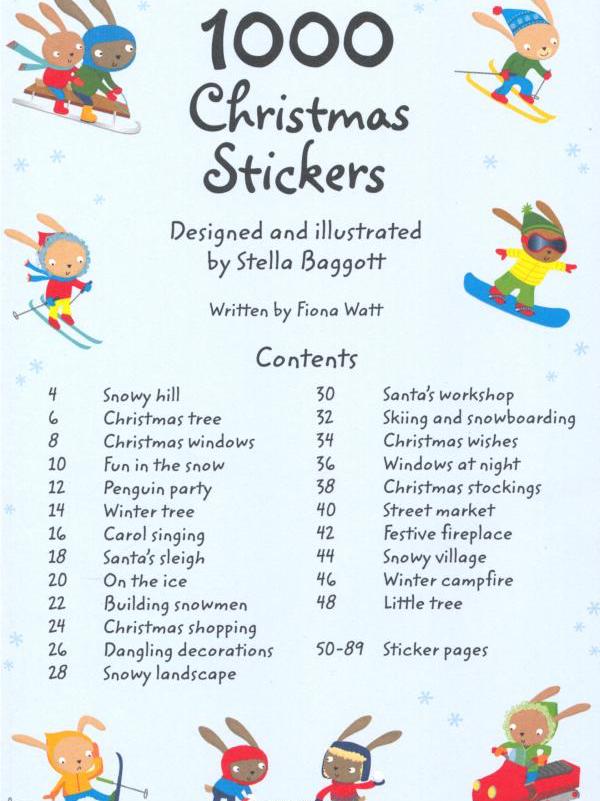 1000
Christmas
Stickers
Designed and illustrated
by Stella Baggott
Written by Fiona Watt
Contents
4 Snowy hill
6 Christmas tree
8 Christmas windows
10 Fun in the snow
12 Penguin party
14 Winter tree
16 Carol singing
18 Santa's sleigh
20 On the ice
22 Building snowmen
24 Christmas shopping
26 Dangling decorations
28 Snowy landscape
30 Santa's workshop
32 Skiing and snowboarding
34 Christmas wishes
36 Windows at night
38 Christmas stockings
40 Street market
42 Festive fireplace
44 Snowy village
46 Winter campfire
48 Little tree
50-89 Sticker pages